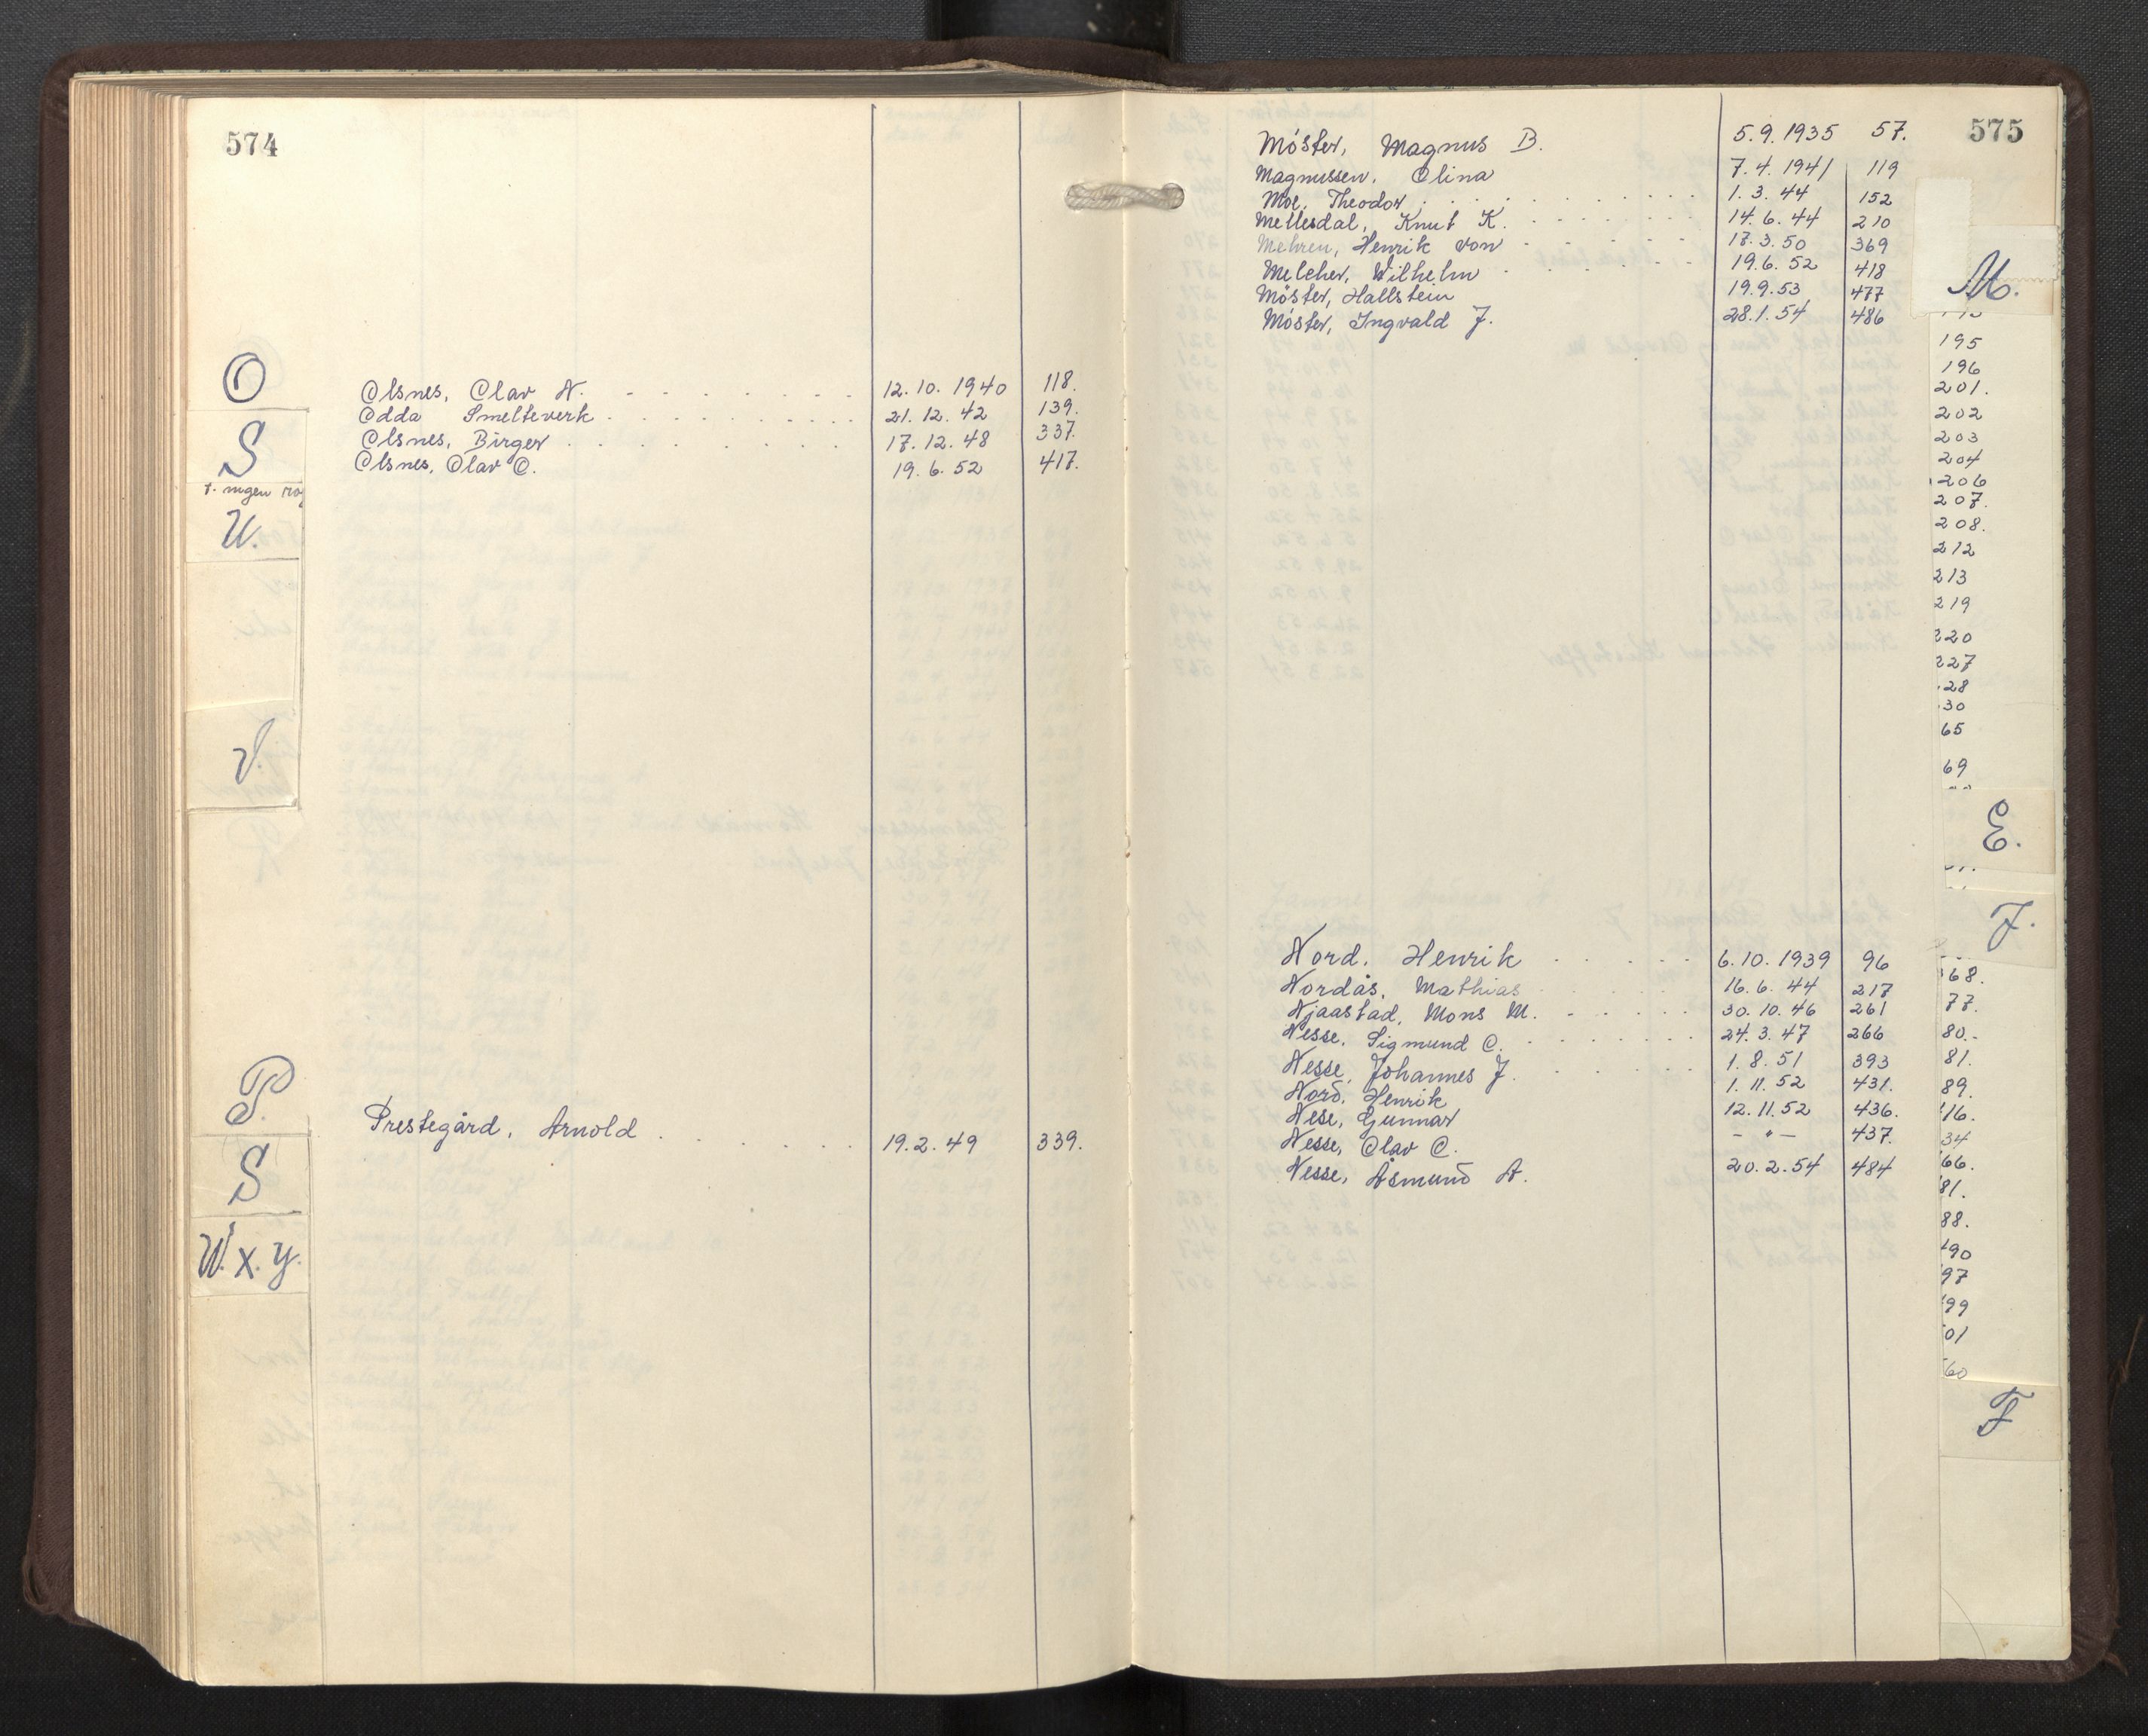 574
O
Olsnes, Olav N. 12.10.1940 118.
Odda Smelteverk 21.12.42 139.
Olsnes, Birger 17.12.48 337.
Olsnes, Olav O. 19.6.52 417.
S
U.
V.
P.
Prestegård, Arnold 19.2.49 339.
S
W. X. Y.
575
Möster, Magnus B. 5.9.1935 57.
Magnussen, Olina 7.4.1941 119
Moe, Theodor 1.3.44 152
Mellesdal, Knut K. 14.6.44 210
Mehren, Henrik von 17.3.50 369
Melcher, Wilhelm 19.6.52 418
Möster, Hallstein 19.9.53 477
Möster, Ingvald J. 28.1.54 486
Nord, Henrik 6.10.1939 96
Nordås, Mathias 16.6.44 217
Njaastad, Mons M. 30.10.46 261
Nesse, Sigmund O. 24.3.47 266
Nesse, Johannes J. 1.8.51 393
Nord, Henrik 1.11.52 431.
Nese, Gunnar 12.11.52 436.
Nesse, Olav O. - " - 437.
Nesse, Åsmund A. 20.2.54 484
M.
195
196
201.
202
203
204
206
207.
208.
212
213
219
220
227
28
30
65
69
E.
J.
68.
77.
80.-
81.
89.
16.
34
66.
81.
88.
90
97
99
01
60
F